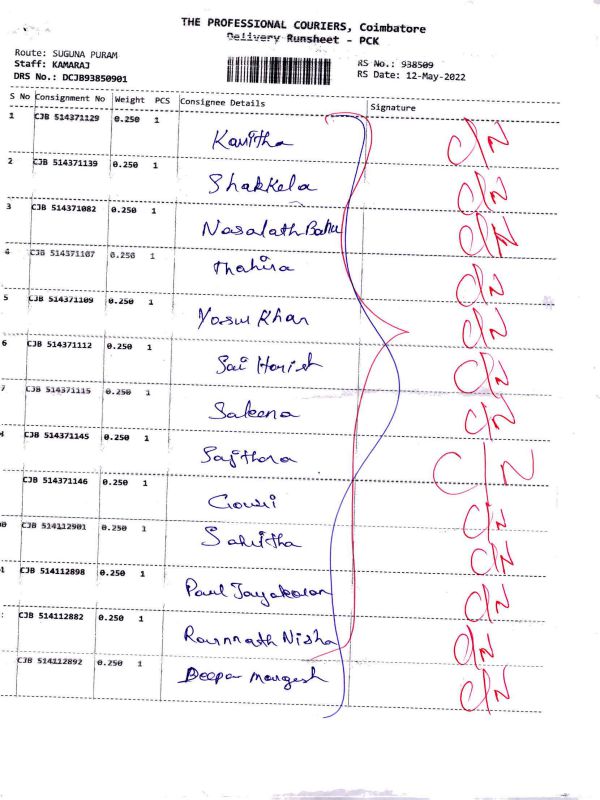 THE PROFESSIONAL COURIERS, Coimbatore
Delivery Runsheet - PCK
Route: SUGUNA PURAM
Staff: KAMARAJ
DRS No.: DCJB93850901
RS No.: 938509
RS Date: 12-May-2022
S No Consignment No Weight PCS Consignee Details Signature
1 CJB 514371129 0.250 1 Kavitha C/N
2 CJB 514371139 0.250 1 Shakkela C/N
3 CJB 514371082 0.250 1 Nasalath Banu C/N
4 CJB 514371107 0.250 1 Thahira C/N
5 CJB 514371109 0.250 1 Khan C/N
6 CJB 514371112 0.250 1 Sai Harish C/N
7 CJB 514371115 0.250 1 Saleena C/N
CJB 514371145 0.250 1 Sajithora C/N
CJB 514371146 0.250 1 Gowri C/N
0 CJB 514112901 0.250 1 C/N
1 CJB 514112898 0.250 1 Paul C/N
CJB 514112882 0.250 1 Nisha C/N
CJB 514112892 0.250 1 C/N